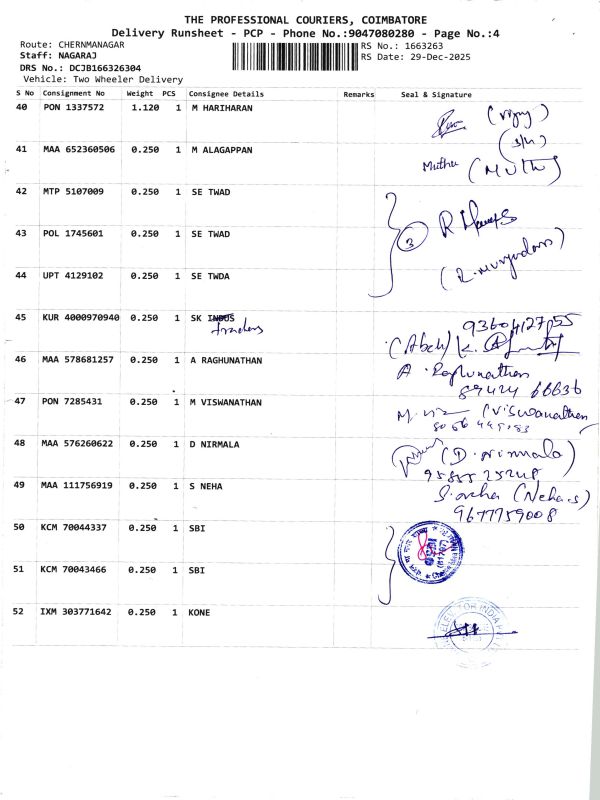 THE PROFESSIONAL COURIERS, COIMBATORE
Delivery Runsheet - PCP - Phone No.:9047080280 - Page No.:4
Route: CHERNMANAGAR
RS No.: 1663263
Staff: NAGARAJ
RS Date: 29-Dec-2025
DRS No.: DCJB166326304
Vehicle: Two Wheeler Delivery
S No Consignment No Weight PCS Consignee Details Remarks Seal & Signature
40 PON 1337572 1.120 1 M HARIHARAN
41 MAA 652360506 0.250 1 M ALAGAPPAN Muthu
42 MTP 5107009 0.250 1 SE TWAD
43 POL 1745601 0.250 1 SE TWAD 3
44 UPT 4129102 0.250 1 SE TWDA
45 KUR 4000970940 0.250 1 SK INDUS
traders
46 MAA 578681257 0.250 1 A RAGHUNATHAN A. Raghunathan
47 PON 7285431 0.250 1 M VISWANATHAN (Viswanathan
48 MAA 576260622 0.250 1 D NIRMALA (D. Nirmala)
49 MAA 111756919 0.250 1 S NEHA (Neha.s)
9677759008
50 KCM 70044337 0.250 1 SBI
51 KCM 70043466 0.250 1 SBI
52 IXM 303771642 0.250 1 KONE